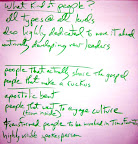 What kind of people?
all types @ all kids
also highly dedicated to move it ahead
naturally developing new leaders
people that actually share the gospel
people that make a ruckus
apostolic bent
people that want to engage culture
transformed people to be involved in transformation
highly visible spokesperson